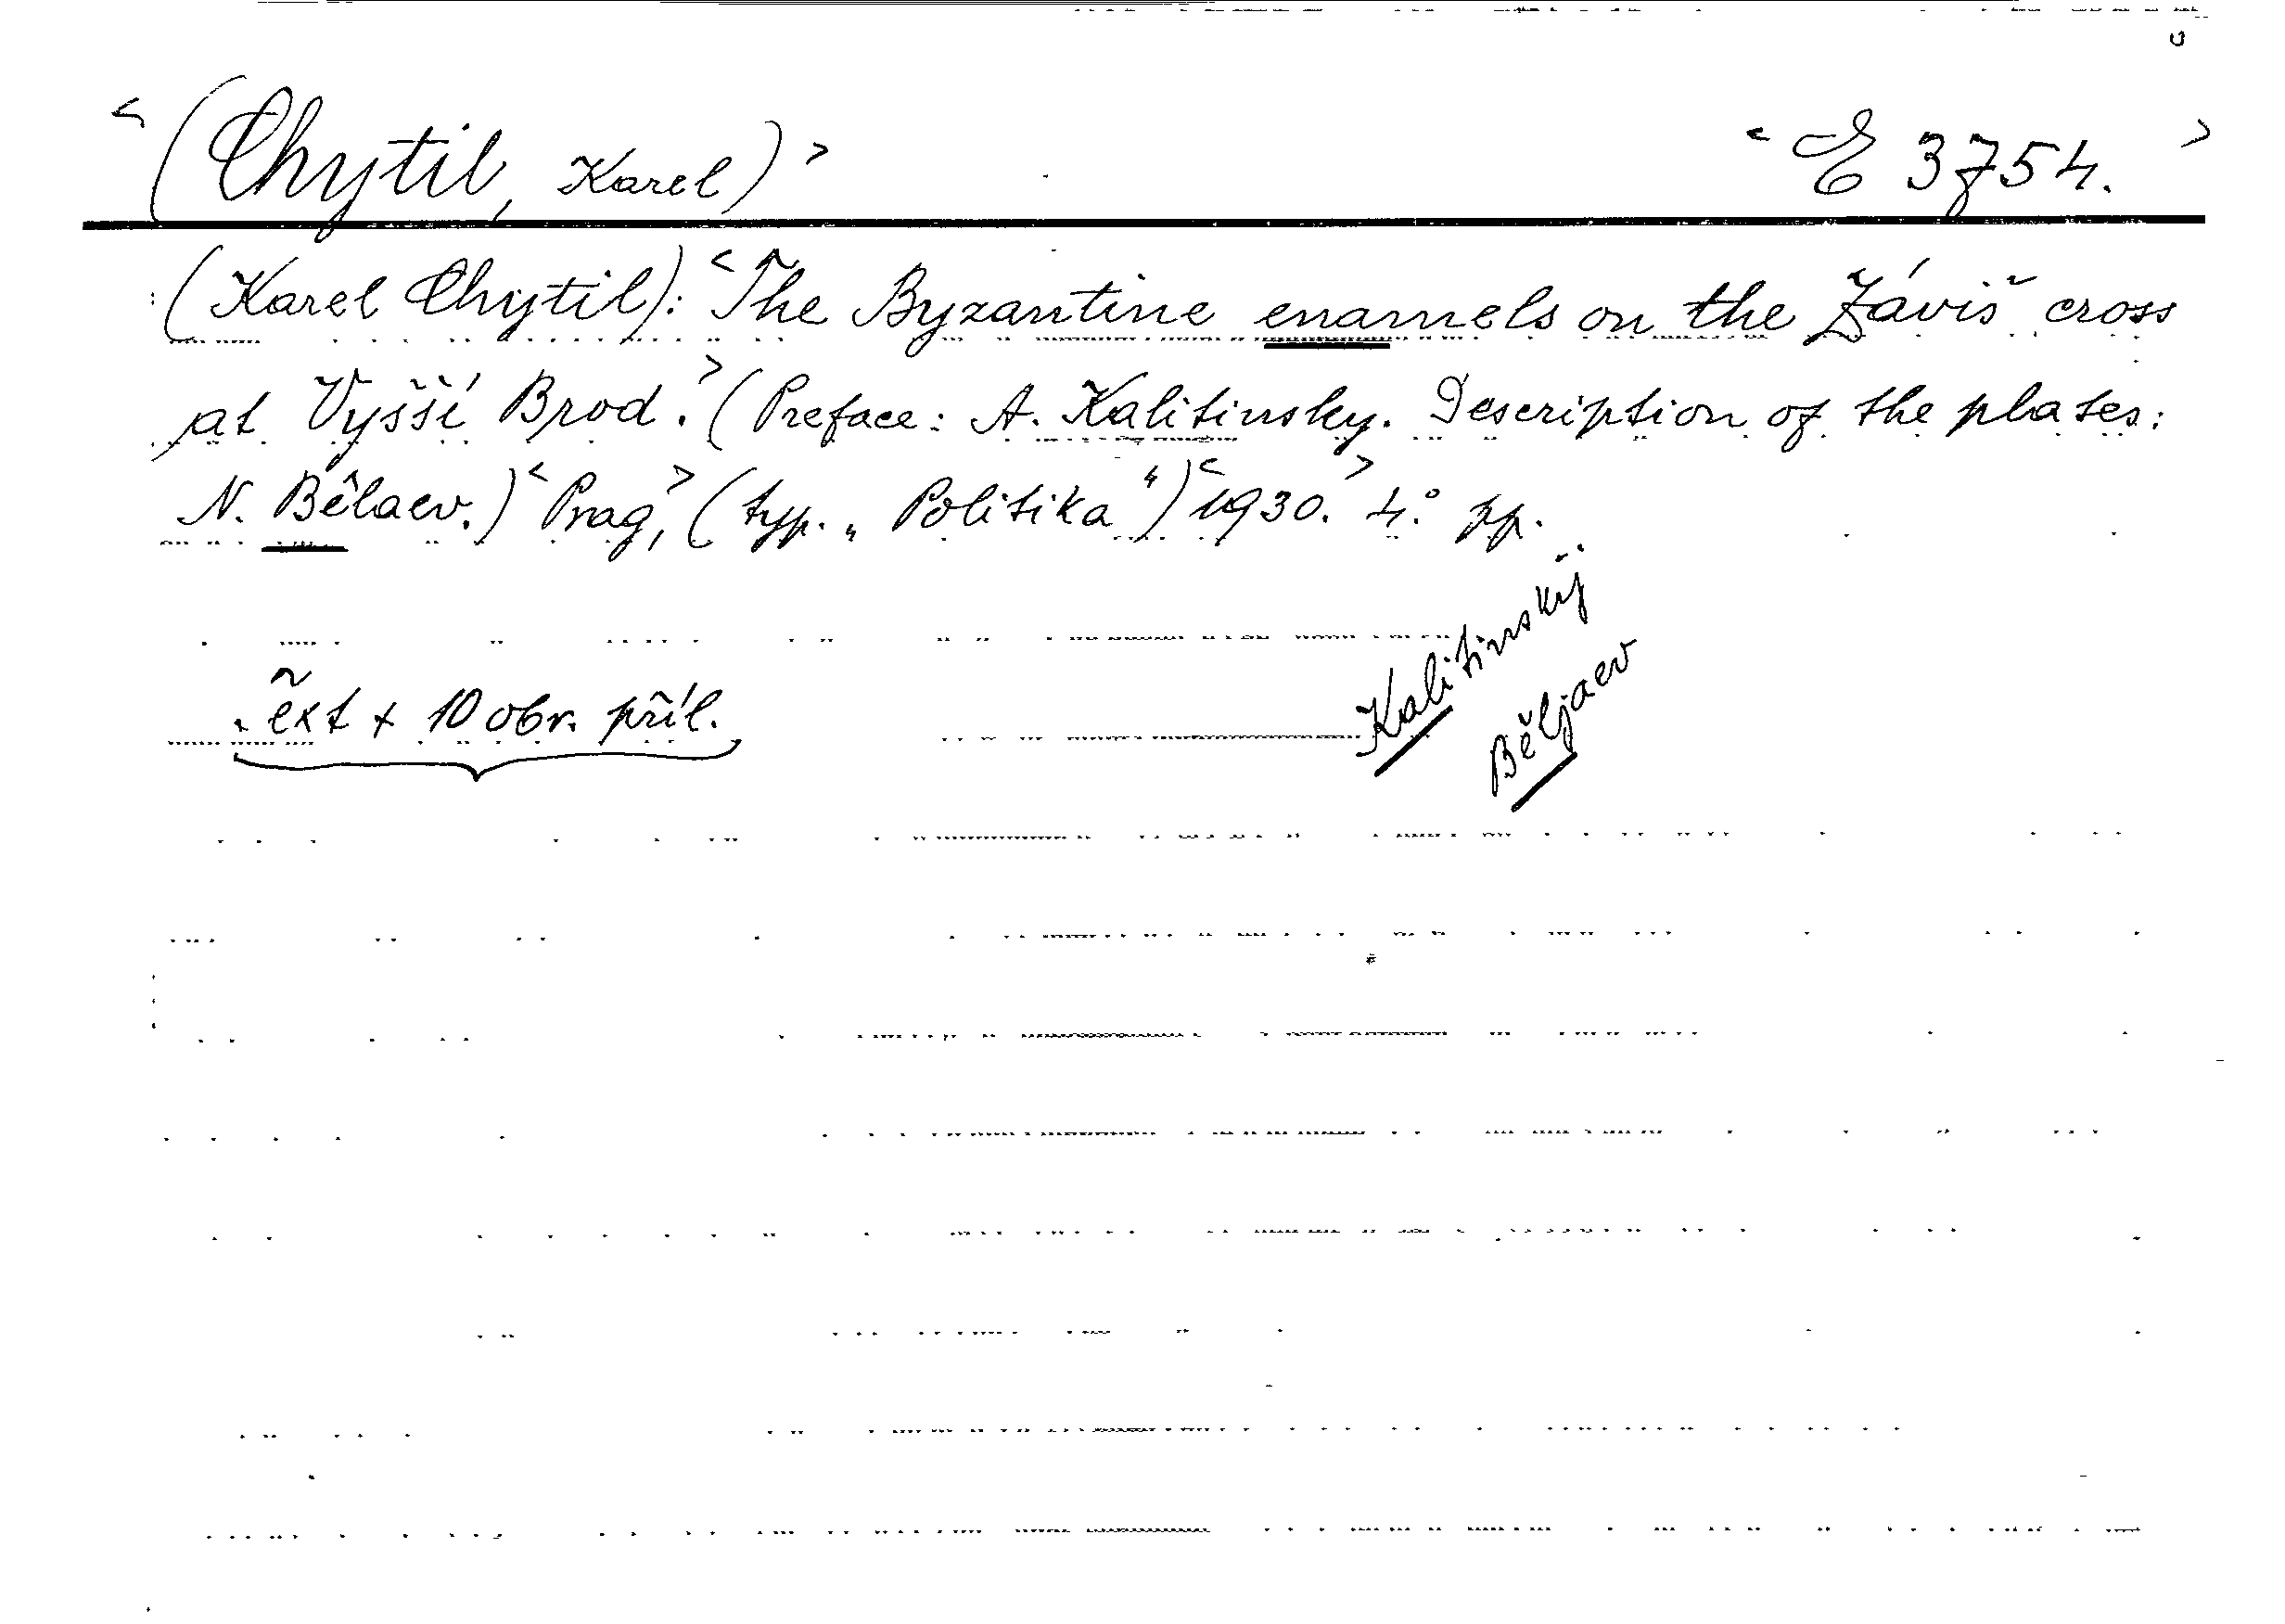 <(Chytil, Karel)> <E 3754.>
(Karel Chytil): <The Byzantine enamels on the Záviš cross
at Vyšší Brod.> (Preface: A. Kalitinsky. Description of the plates:
N. Bělaev.) <Prag,> (typ. „Politika") <1930.> 4.° pp.
Kalitinskyj
Běljaev
+ 10 obr. příl.